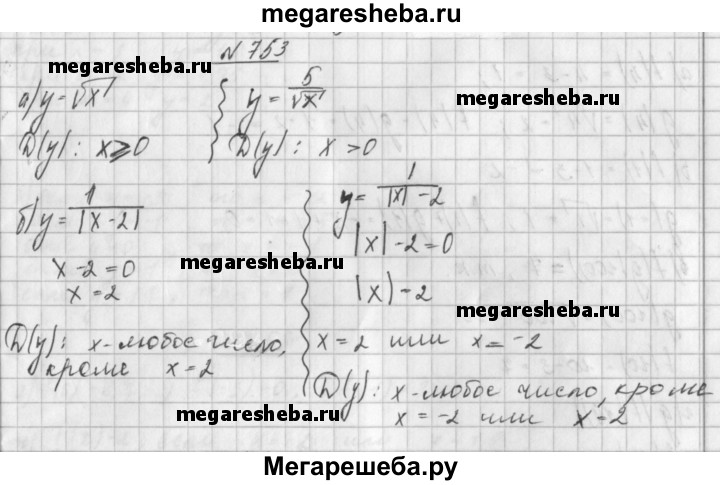 megaresheba.ru
N 753
megaresheba.ru
megaresheba.ru
а) y = √x
D(y): x ⩾ 0
y = 5/√x
D(y): x > 0
б) y = 1/|x - 2|
x - 2 = 0
x = 2
D(y): x - любое число,
кроме x = 2
y = 1/(|x| - 2)
|x| - 2 = 0
|x) - 2
x = 2 или x = -2
D(y): x - любое число, кроме
x = -2 или x - 2
megaresheba.ru
megaresheba.ru
megaresheba.ru
Мегарешеба.ру